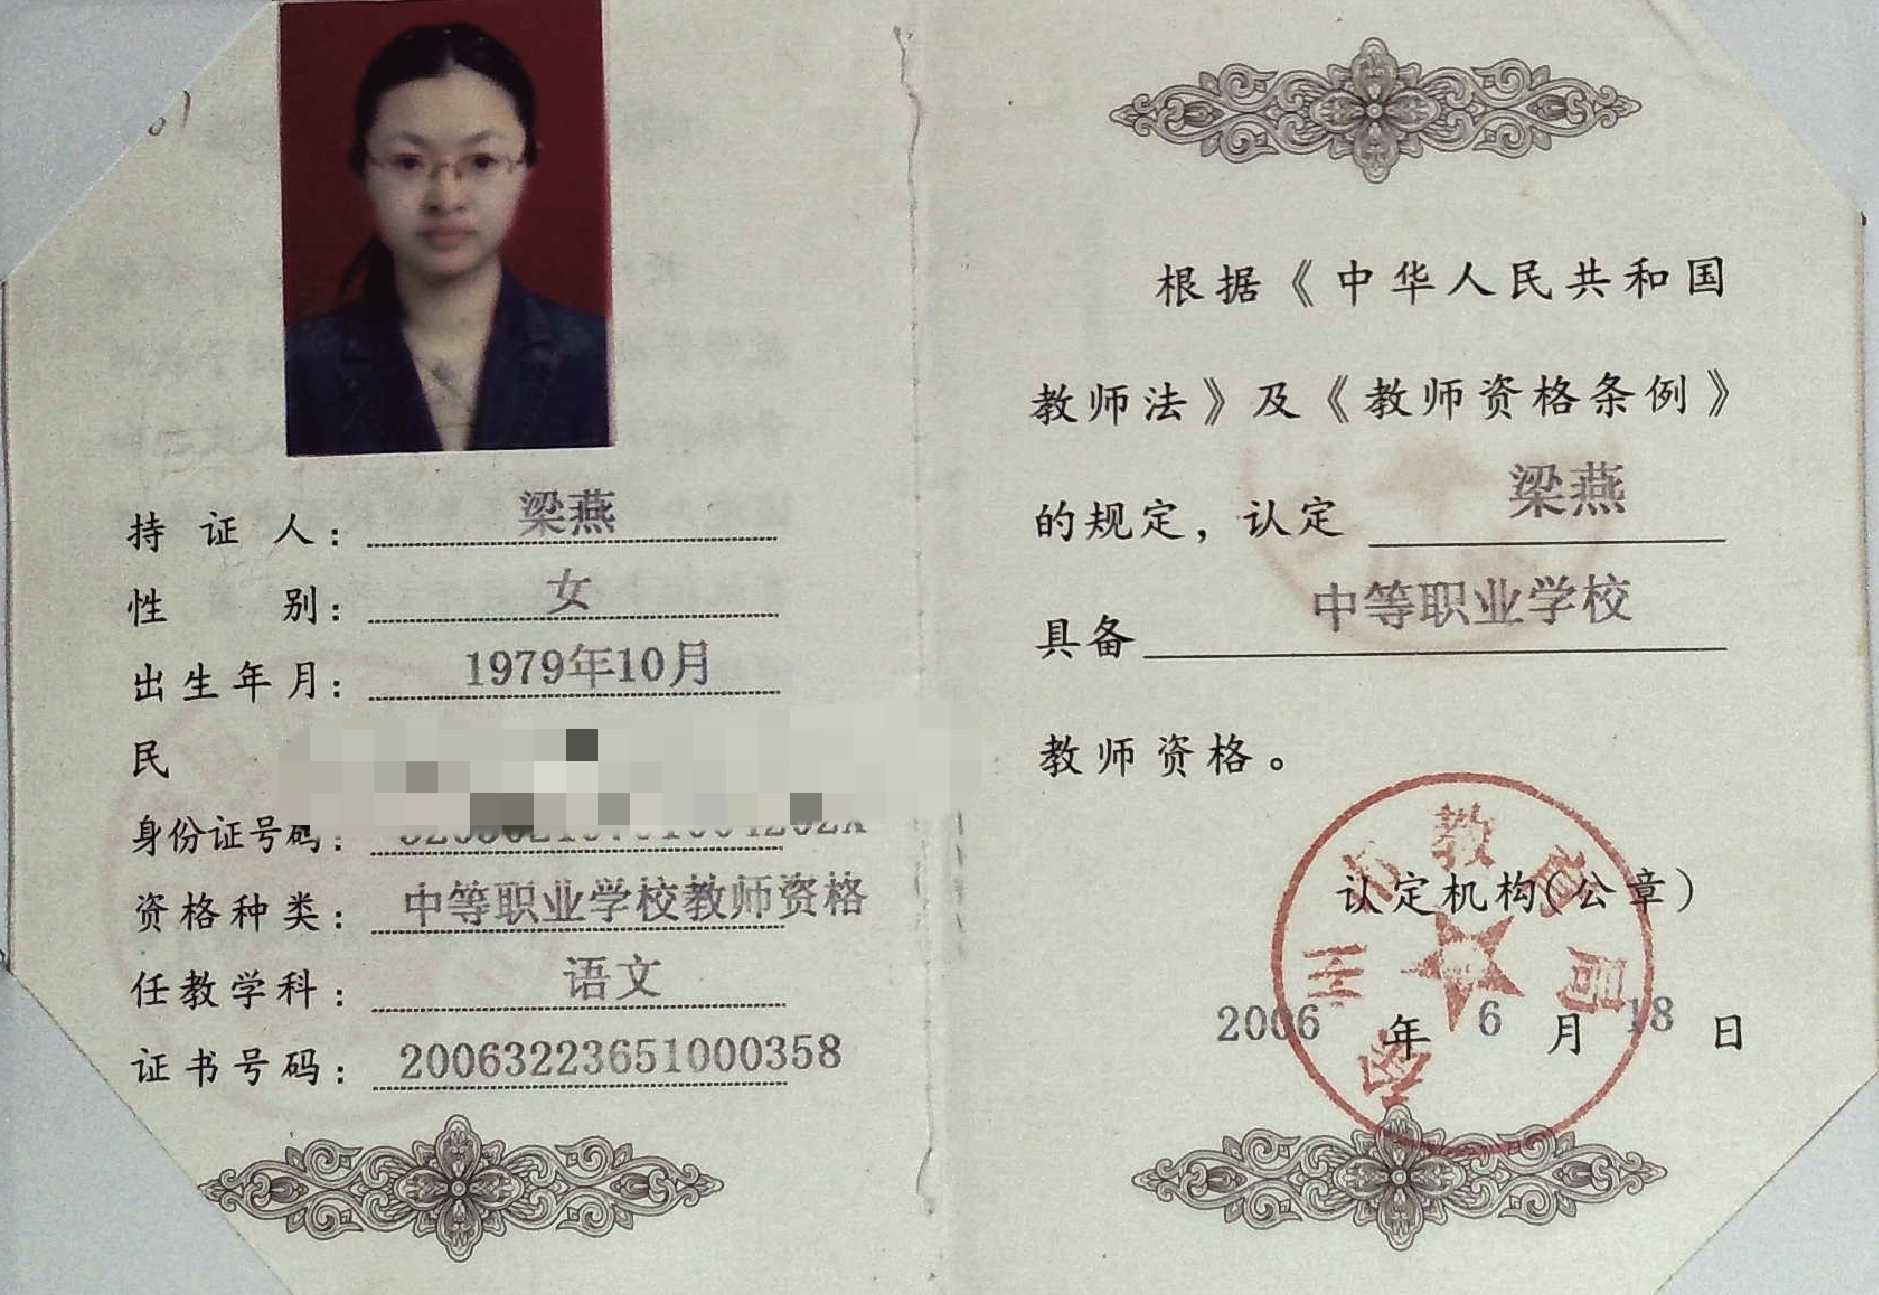 持证人：梁燕
性别：女
出生年月：1979年10月
民
身份证号码：
资格种类：中等职业学校教师资格
任教学科：语文
证书号码：20063223651000358
根据《中华人民共和国
教师法》及《教师资格条例》
的规定，认定 梁燕
具备 中等职业学校
教师资格。
认定机构（公章）
2006年6月18日
市教育局